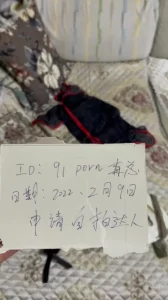 ID: 91 porn 真总
日期: 2022.2月9日
申請自拍达人